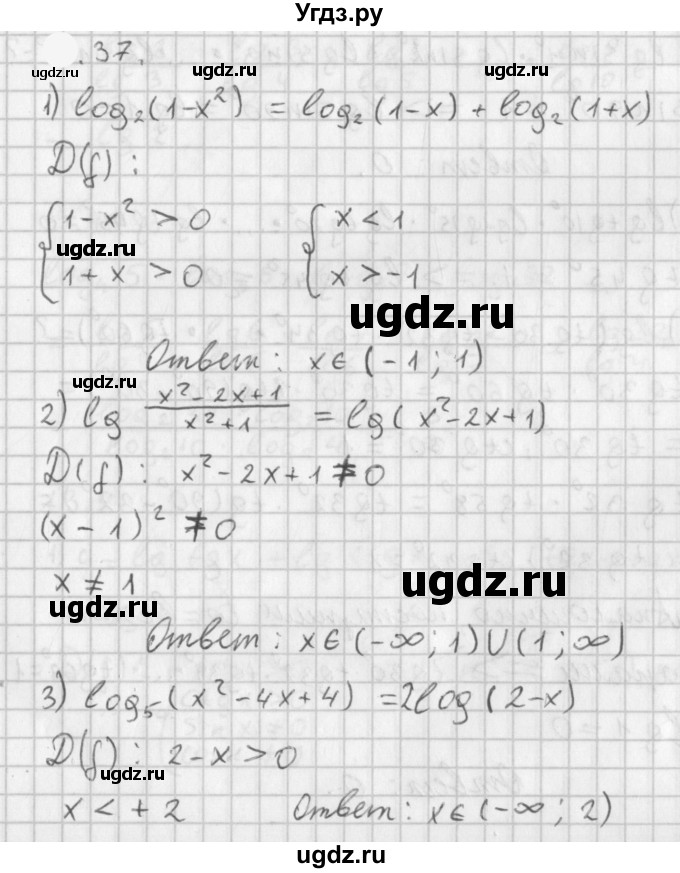 Угдз.ру
.37.
ugdz.ru ugdz.ru ugdz.ru
1) log₂(1-x²) = log₂(1-x) + log₂(1+x)
D(f):
{1-x² > 0 {x < 1
ugdz.ru
{1+x > 0 {x > -1
ugdz.ru
Ответ: x∈(-1; 1)
ugdz.ru
2) lg (x²-2x+1)/(x²+1) = lg(x²-2x+1)
D(f): x²-2x+1≠0
(x-1)²≠0
x≠1 ugdz.ru
ugdz.ru
Ответ: x∈(-∞; 1)∪(1; ∞)
3) log₅(x²-4x+4) = 2log(2-x)
D(f): 2-x>0
ugdz.ru
x<+2 Ответ: x∈(-∞; 2)
ugdz.ru